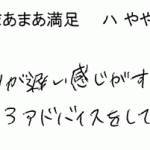 まあまあ満足 ハ やや
が遅い感じがす
るアドバイスをして